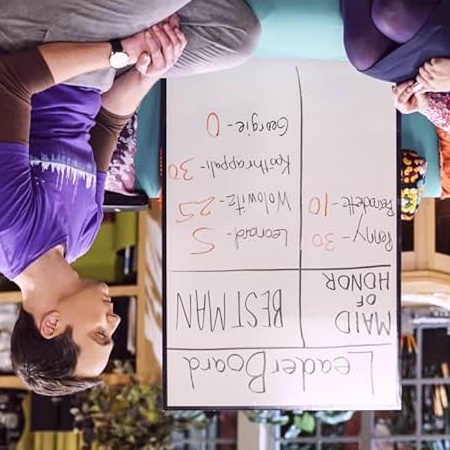 LeaderBoard
MAID
OF
HONOR
BEST MAN
Penny - 30
Bernadette - 10
Leonard - 5
Wolowitz - 25
Koothrappali - 30
Georgie - 0